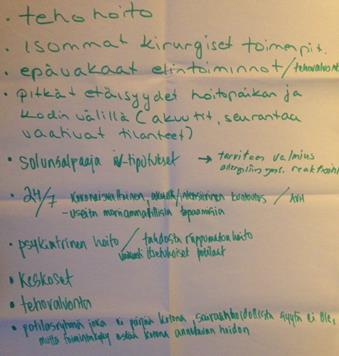 • tehohoito
• isommat kirurgiset toimenpit.
• epävakaat elintoiminnot/tehovalvonta
• pitkät etäisyydet hoitopaikan ja
kodin välillä (akuutit, seurantaa
vaativat tilanteet)
• solunsalpaaja iv-tiputukset → tarvitaan valmius
allergian yms. reaktioihin
• 24/7 kokonaisvaltainen, /intensiivinen kuntoutus / AVH
- useita moniammatillisia tapaamisia
• psykiatrinen hoito / tahdosta riippumaton hoito
itsetuhoiset potilaat
• keskoset
• tehovalvonta
• potilasryhmä joka ei pärjää kotona, sairaanhoidollista syytä ei ole,
mutta toimintakyky estää kotona annettavan hoidon